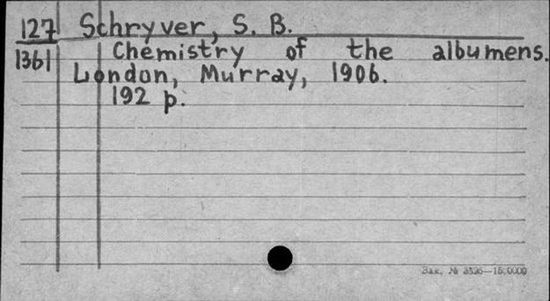 127 Schryver, S. B.
1361 Chemistry of the albumens.
London, Murray, 1906.
192 p.
Зак. № 3526—15.0000